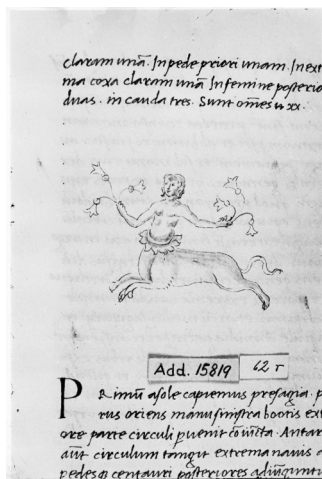 claram unã. In pede priori unam. In ext
ma coxa claram unã In femine posterio
duas. in cauda tres. Sunt om̃es u xx.
Add. 15819 62 r
PRimũ a sole capiemus presagia. p
rus oriens manu sinistra bootis ext
ore parte circuli puenit cõiũcta. Antar
aũt circulum tangit extrema nauis a
pedesq centauri posteriores adiũguntu